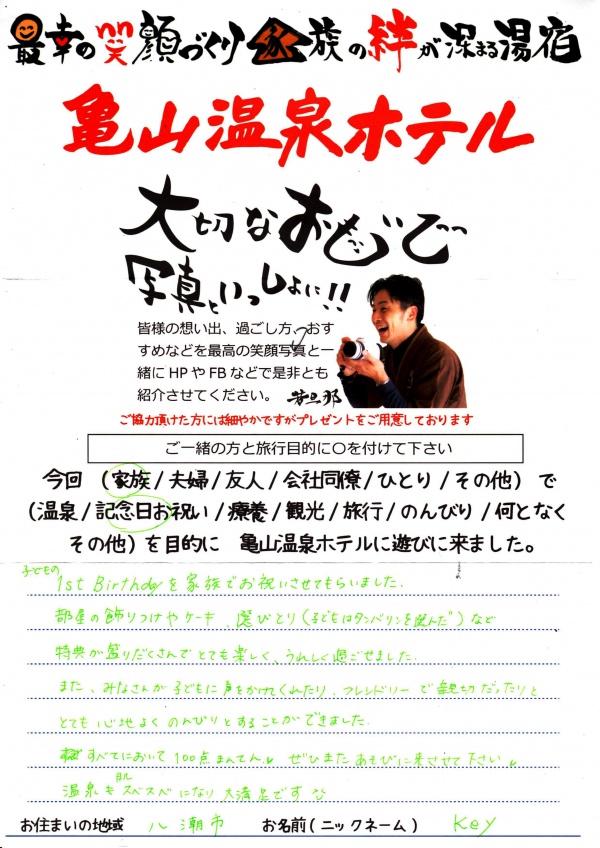 最幸の笑顔づくり 家族の絆が深まる湯宿
亀山温泉ホテル
大切なおもいで
写真といっしょに!!
皆様の想い出、過ごし方、おす
すめなどを最高の笑顔写真と一
緒にHPやFBなどで是非とも
紹介させてください。 若旦那
ご協力頂けた方には細やかですがプレゼントをご用意しております
ご一緒の方と旅行目的に〇を付けて下さい
今回 (家族/夫婦/友人/会社同僚/ひとり/その他) で
(温泉/記念日お祝い/療養/観光/旅行/のんびり/何となく
その他) を目的に 亀山温泉ホテルに遊びに来ました。
子どもの
1st Birthdayを家族でお祝いさせてもらいました.
部屋の飾りつけやケーキ、選びとり(子どもはタンバリンを選んだ")など
特典が盛りだくさんでとても楽しく、うれしく過ごせました.
また、みなさんが子どもに声をかけてくれたり、フレンドリーで親切だったりと
とても心地よくのんびりとすることができました.
すべてにおいて100点まんてん ぜひまたあそびに来させて下さい
肌
温泉もスベスベになり大満足です
お住まいの地域 八潮市 お名前(ニックネーム) Key